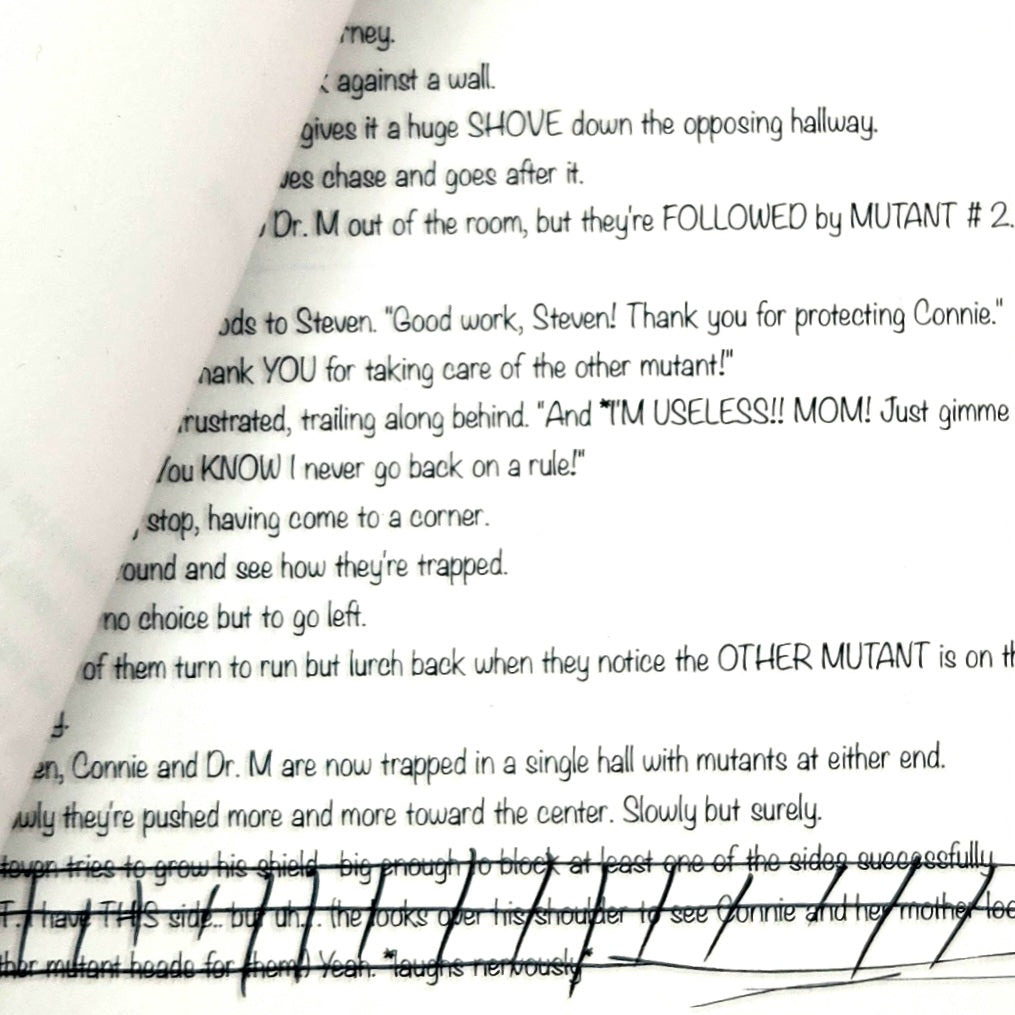 rney.
against a wall.
gives it a huge SHOVE down the opposing hallway.
ves chase and goes after it.
Dr. M out of the room, but they're FOLLOWED by MUTANT # 2.
ods to Steven. "Good work, Steven! Thank you for protecting Connie."
hank YOU for taking care of the other mutant!"
rustrated, trailing along behind. "And *I'M USELESS!! MOM! Just gimme
You KNOW I never go back on a rule!"
, stop, having come to a corner.
round and see how they're trapped.
no choice but to go left.
of them turn to run but lurch back when they notice the OTHER MUTANT is on th
en, Connie and Dr. M are now trapped in a single hall with mutants at either end.
wly they're pushed more and more toward the center. Slowly but surely.
teven tries to grow his shield big enough to block at least one of the sides successfully
T. I have THIS side.. but uh... the looks over his shoulder to see Connie and her mother loo
ther mutant heads for them) Yeah. *laughs nervously*